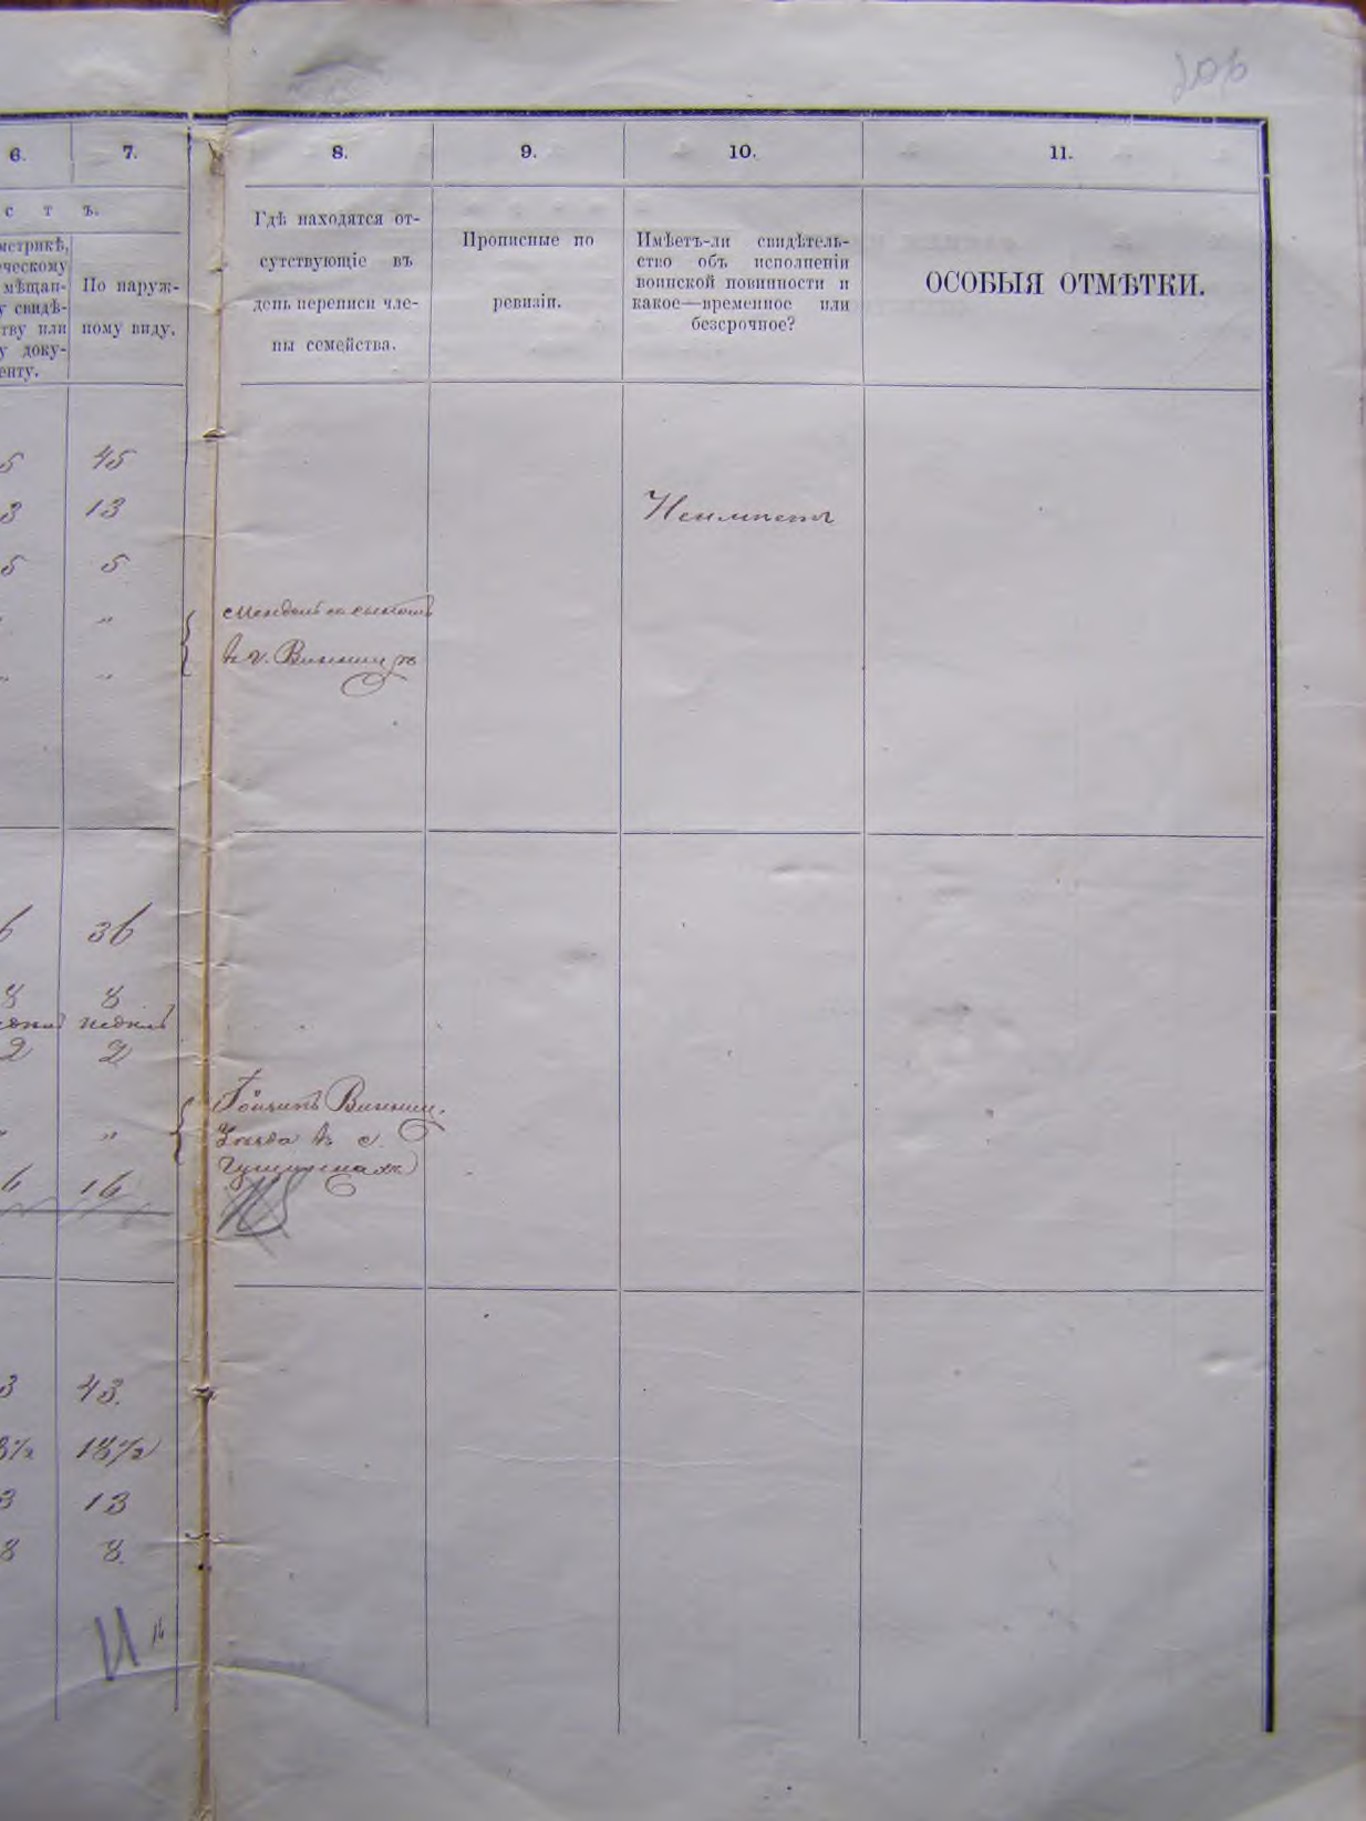 206
6. 7. 8. 9. 10. 11.
с т ъ.
метрикѣ,
ческому
мѣщан-
у свидѣ-
тву или
у доку-
енту.
По наруж-
ному виду.
Гдѣ находятся от-
сутствующіе въ
день переписи чле-
ны семейства.
Прописные по
ревизіи.
Имѣетъ-ли свидѣтель-
ство объ исполненіи
воинской повинности и
какое—временное или
безсрочное?
ОСОБЫЯ ОТМѢТКИ.
5 45
3 13 Неимѣетъ
5 5
" " Мендель съ сыномъ
" " въ г. Винницѣ
6 36
8 8
недѣль
2 2
Винниц.
" " уѣзда въ с.
6 16
3 43.
8½ 18½
3 13
8 8.
11